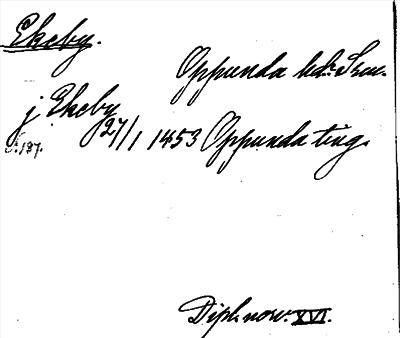 Ekeby.
Oppunda hd: Srm.
j Ekeby 27/1 1453 Oppunda ting.
187.
Dipl. norv. XVI.